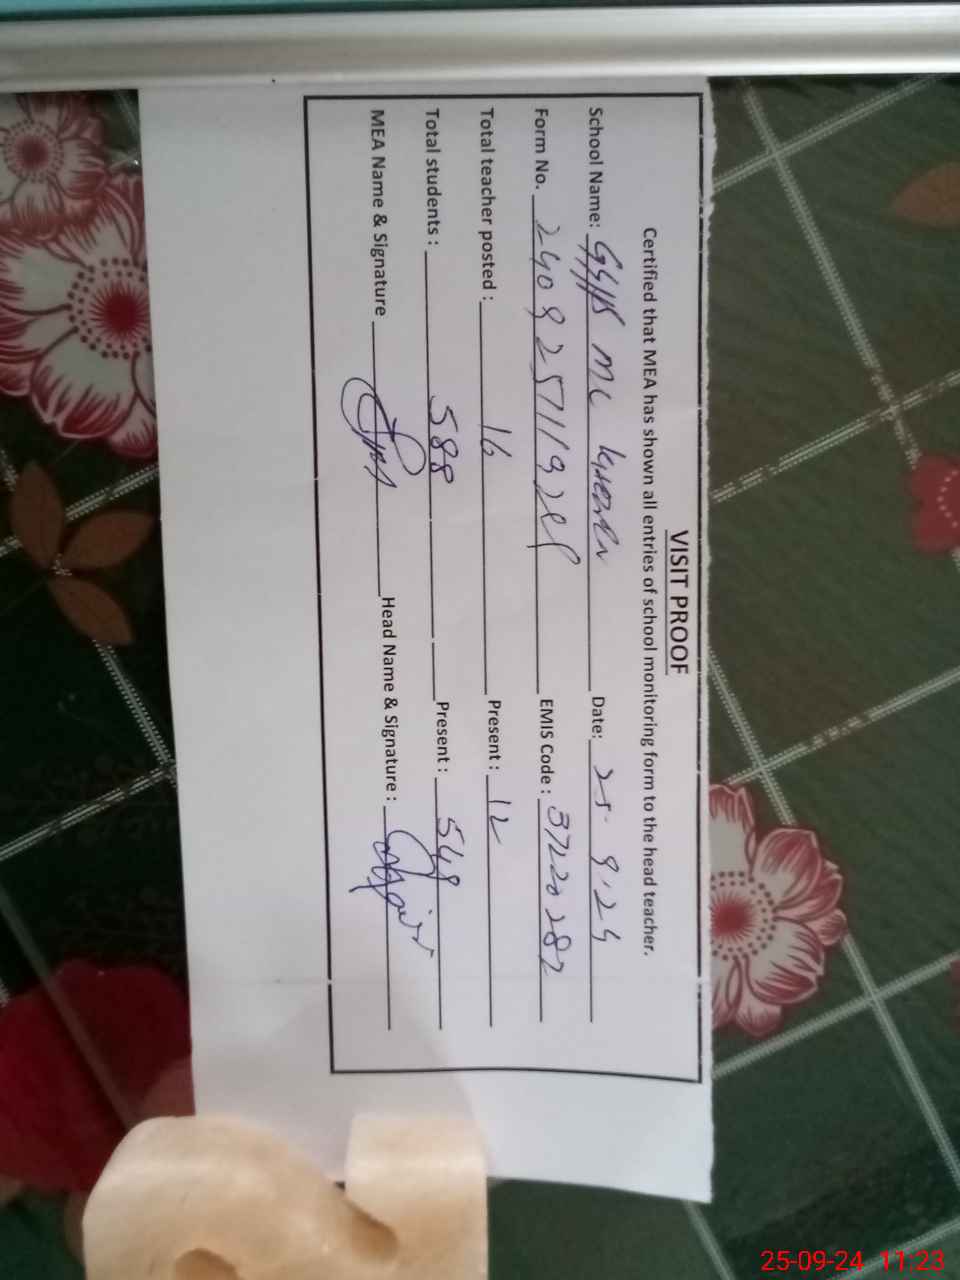 VISIT PROOF
Certified that MEA has shown all entries of school monitoring form to the head teacher.
School Name: MC Date: 25.9.24
Form No. EMIS Code: 37220282
Total teacher posted: 16 Present: 12
Total students: 588 Present: 548
MEA Name & Signature Head Name & Signature:
25-09-24 11:23